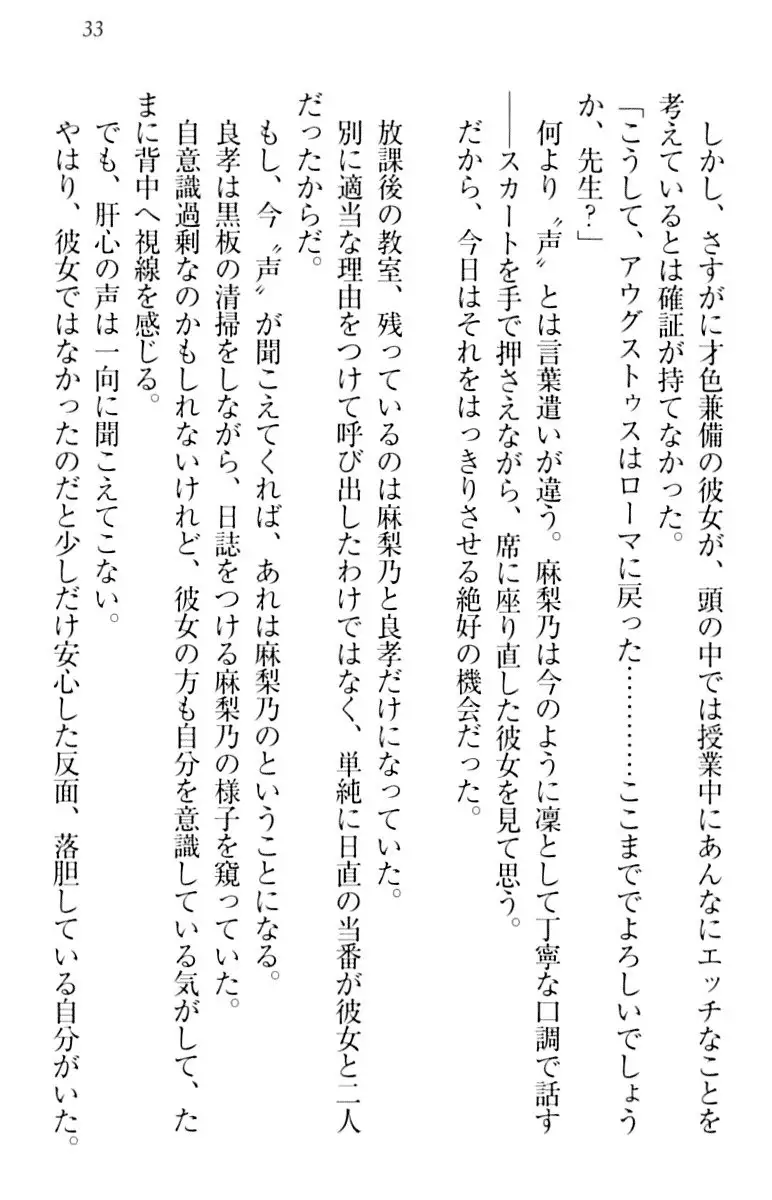 33
しかし、さすがに才色兼備の彼女が、頭の中では授業中にあんなにエッチなことを
考えているとは確証が持てなかった。
「こうして、アウグストゥスはローマに戻った…………ここまででよろしいでしょう
か、先生？」
何より〝声〟とは言葉遣いが違う。麻梨乃は今のように凜として丁寧な口調で話す
――スカートを手で押さえながら、席に座り直した彼女を見て思う。
だから、今日はそれをはっきりさせる絶好の機会だった。
放課後の教室、残っているのは麻梨乃と良孝だけになっていた。
別に適当な理由をつけて呼び出したわけではなく、単純に日直の当番が彼女と二人
だったからだ。
もし、今〝声〟が聞こえてくれば、あれは麻梨乃のということになる。
良孝は黒板の清掃をしながら、日誌をつける麻梨乃の様子を窺っていた。
自意識過剰なのかもしれないけれど、彼女の方も自分を意識している気がして、た
まに背中へ視線を感じる。
でも、肝心の声は一向に聞こえてこない。
やはり、彼女ではなかったのだと少しだけ安心した反面、落胆している自分がいた。